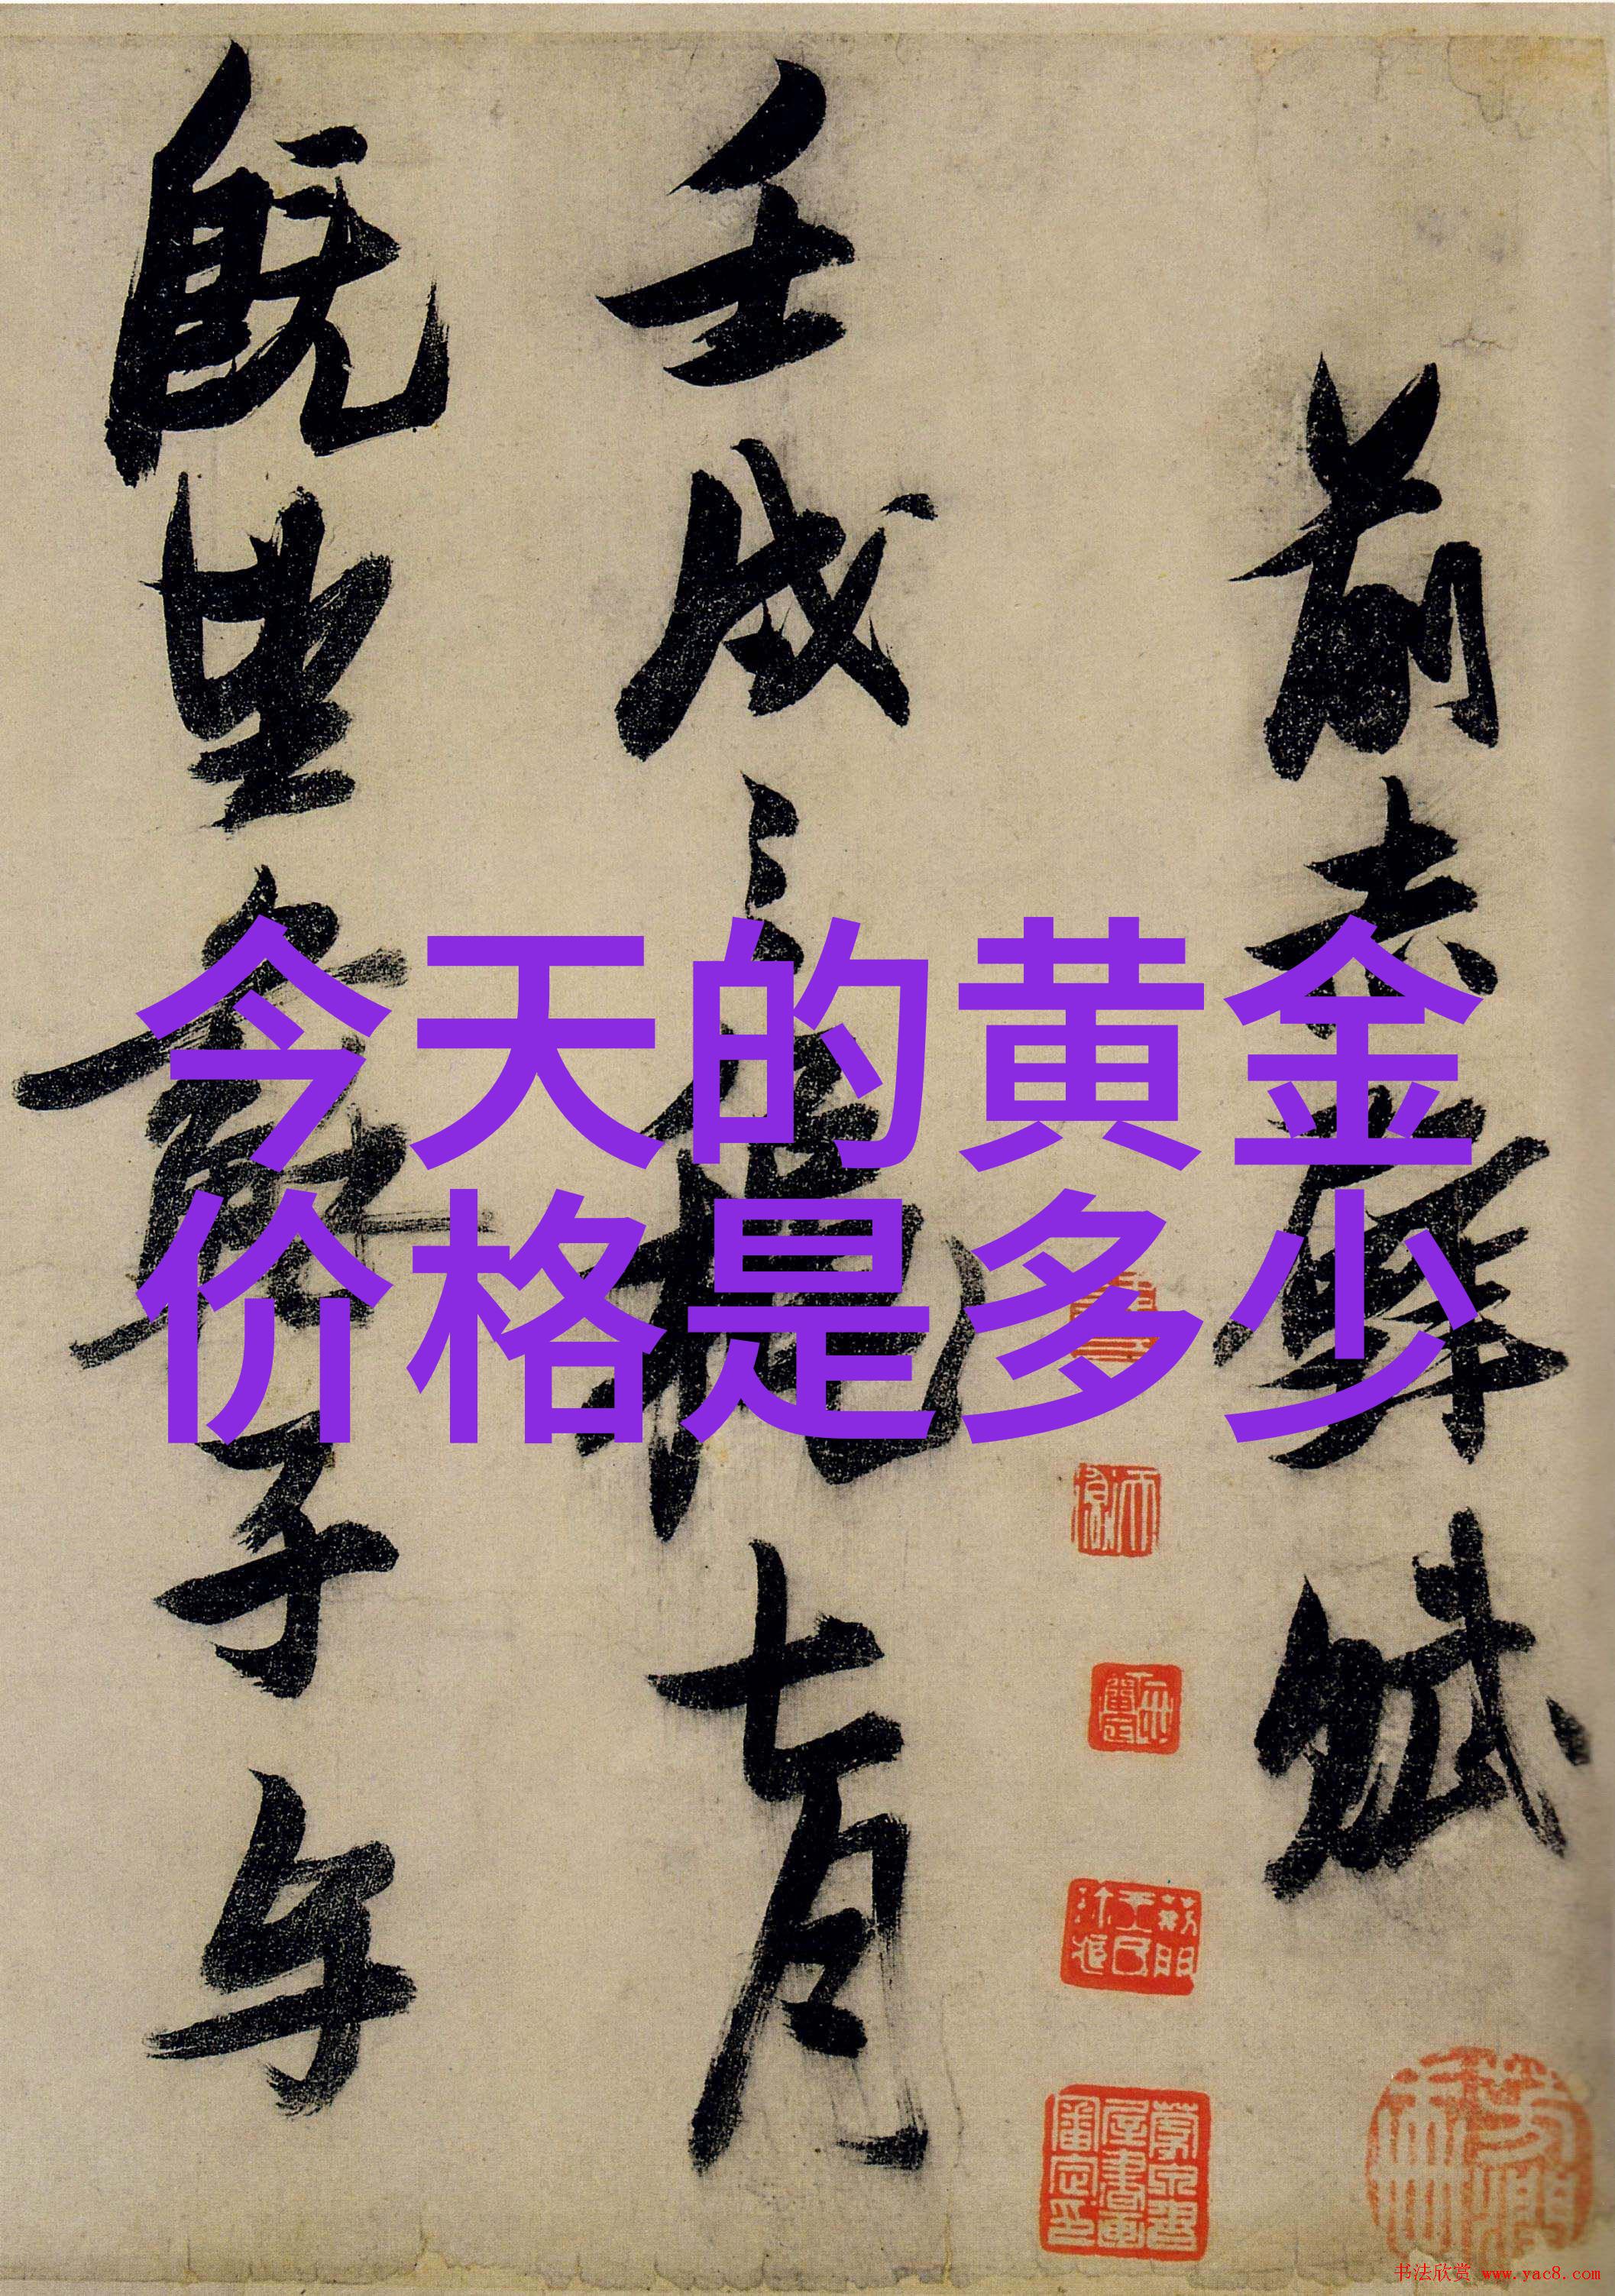 前赤壁赋
壬戌之秋七月
既望苏子与
今天的黄金
价格是多少
书法欣赏 www.yac8.com